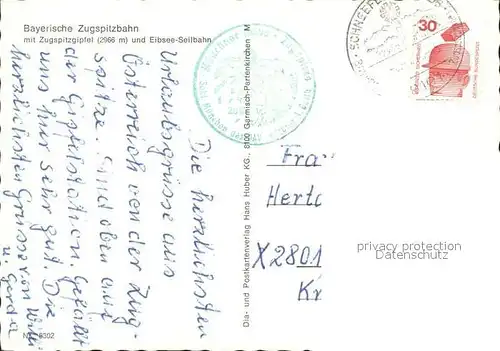 Bayerische Zugspitzbahn
mit Zugspitzgipfel (2966 m) und Eibsee-Seilbahn
Die herzlichsten
Urlaubsgrüsse aus
Österreich von der Zug-
spitze. Sind oben auf
der Gipfelstation. Gefällt
uns hier sehr gut. Die
herzlichsten Grüsse von Willi
u. Gerda
Dia- und Postkartenverlag Hans Huber KG., 8100 Garmisch-Partenkirchen M
30
DEUTSCHE BUNDESPOST
Frau
Herta
X2801
Kr
privacy protection
Datenschutz